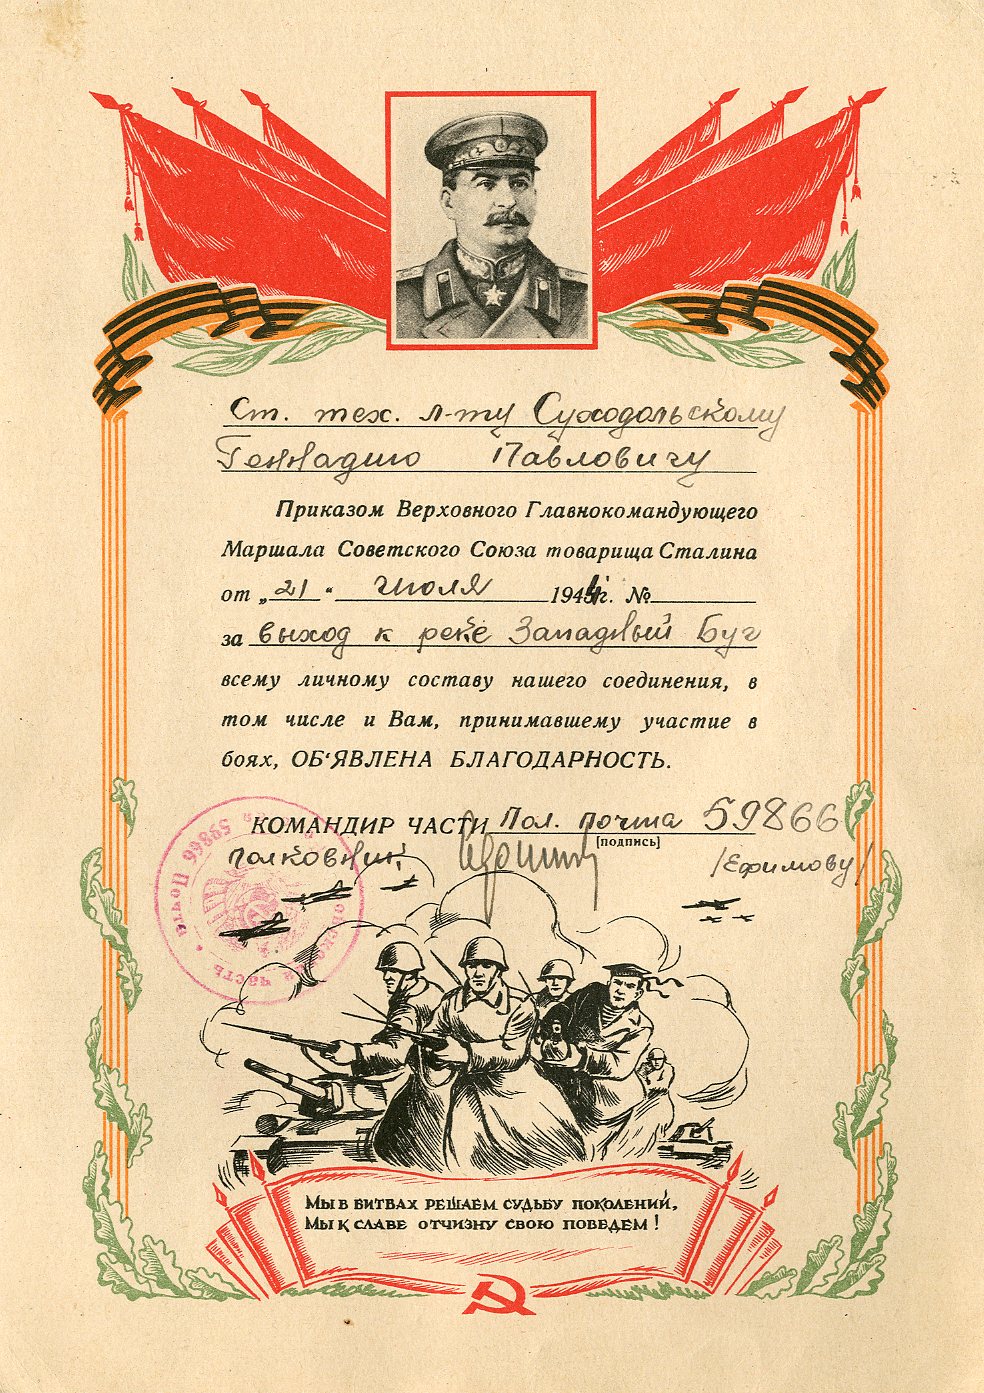 Ст. тех. л-ту Суходольскому
Геннадию Павловичу
Приказом Верховного Главнокомандующего
Маршала Советского Союза товарища Сталина
от „21“ июля 1944г. №
за выход к реке Западный Буг
всему личному составу нашего соединения, в
том числе и Вам, принимавшему участие в
боях, ОБ‘ЯВЛЕНА БЛАГОДАРНОСТЬ.
КОМАНДИР ЧАСТИ Пол. почта 59866
[подпись]
полковник /Ефимову/
часть * Почта 59866
МЫ В БИТВАХ РЕШАЕМ СУДЬБУ ПОКОЛЕНИЙ,
МЫ К СЛАВЕ ОТЧИЗНУ СВОЮ ПОВЕДЕМ!